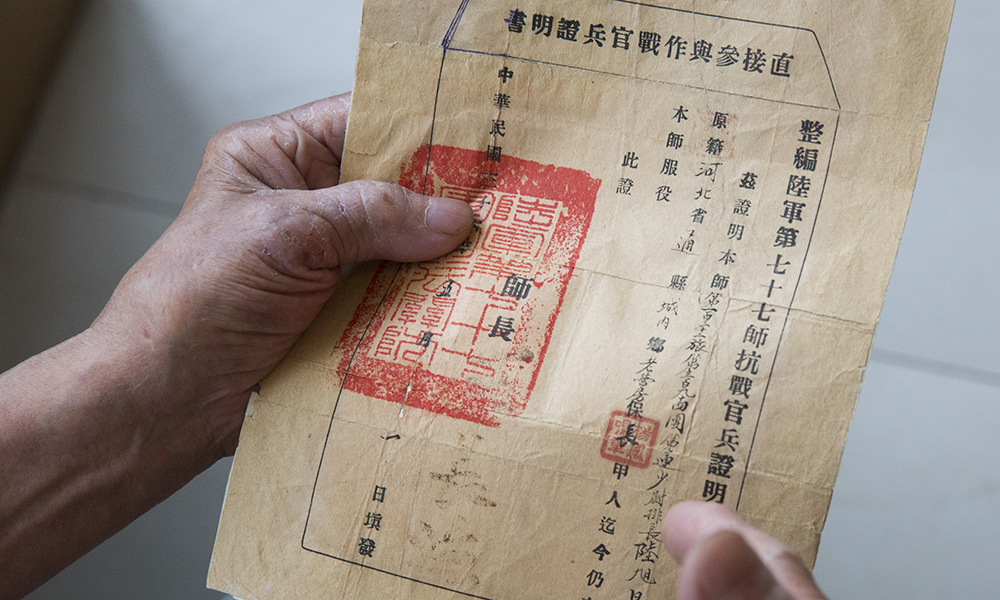 直接參與作戰官兵證明書
整編陸軍第七十七師抗戰官兵證明
茲證明本師第旅第團第連少尉排長陸旭日
原籍河北省通縣城內鄉老營房保長甲人迄今仍
本師服役
此證
師長
中華民國三十五月一日填發